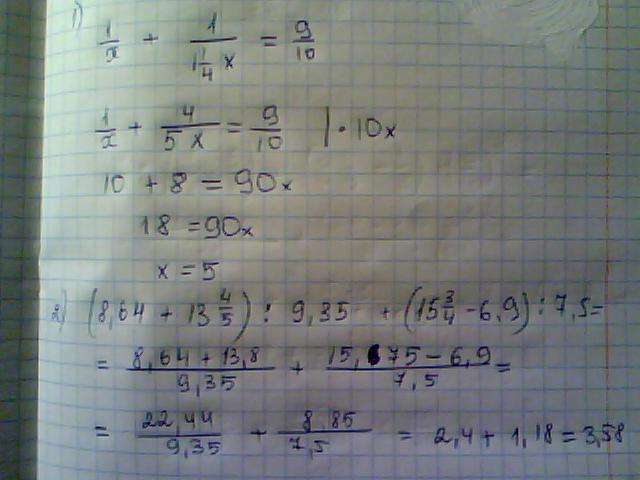 1)
1/x + 1/(1 1/4 x) = 9/10
1/x + 4/(5x) = 9/10 | · 10x
10 + 8 = 90x
18 = 90x
x = 5
2) (8,64 + 13 4/5) : 9,35 + (15 3/4 - 6,9) : 7,5 =
= (8,64 + 13,8)/9,35 + (15,75 - 6,9)/7,5 =
= 22,44/9,35 + 8,85/7,5 = 2,4 + 1,18 = 3,58